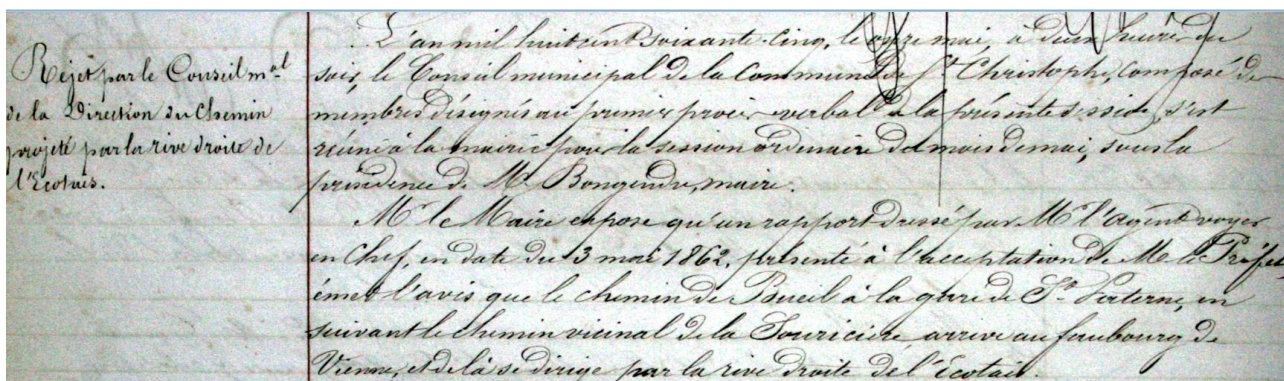 Rejet par le Conseil m.al
de la Direction du Chemin
projeté par la rive droite de
l'Ecotais.
L'an mil huit cent soixante-cinq, le onze mai, à deux heures du
soir, le Conseil municipal de la Commune de St Christophe, composé de
membres désignés au premier procès-verbal de la présente session, s'est
réuni à la mairie pour la session ordinaire du mois de mai, sous la
présidence de Mr Bongendre, maire.
Mr le Maire expose qu'un rapport dressé par Mr l'agent voyer
en Chef, en date du 3 mai 1862, présenté à l'acceptation de Mr le Préfet
émet l'avis que le chemin de Bueil à la gare de St Paterne, en
suivant le chemin vicinal de la Souricière, arrive au faubourg de
Vienne, et de là se dirige par la rive droite de l'écotais.